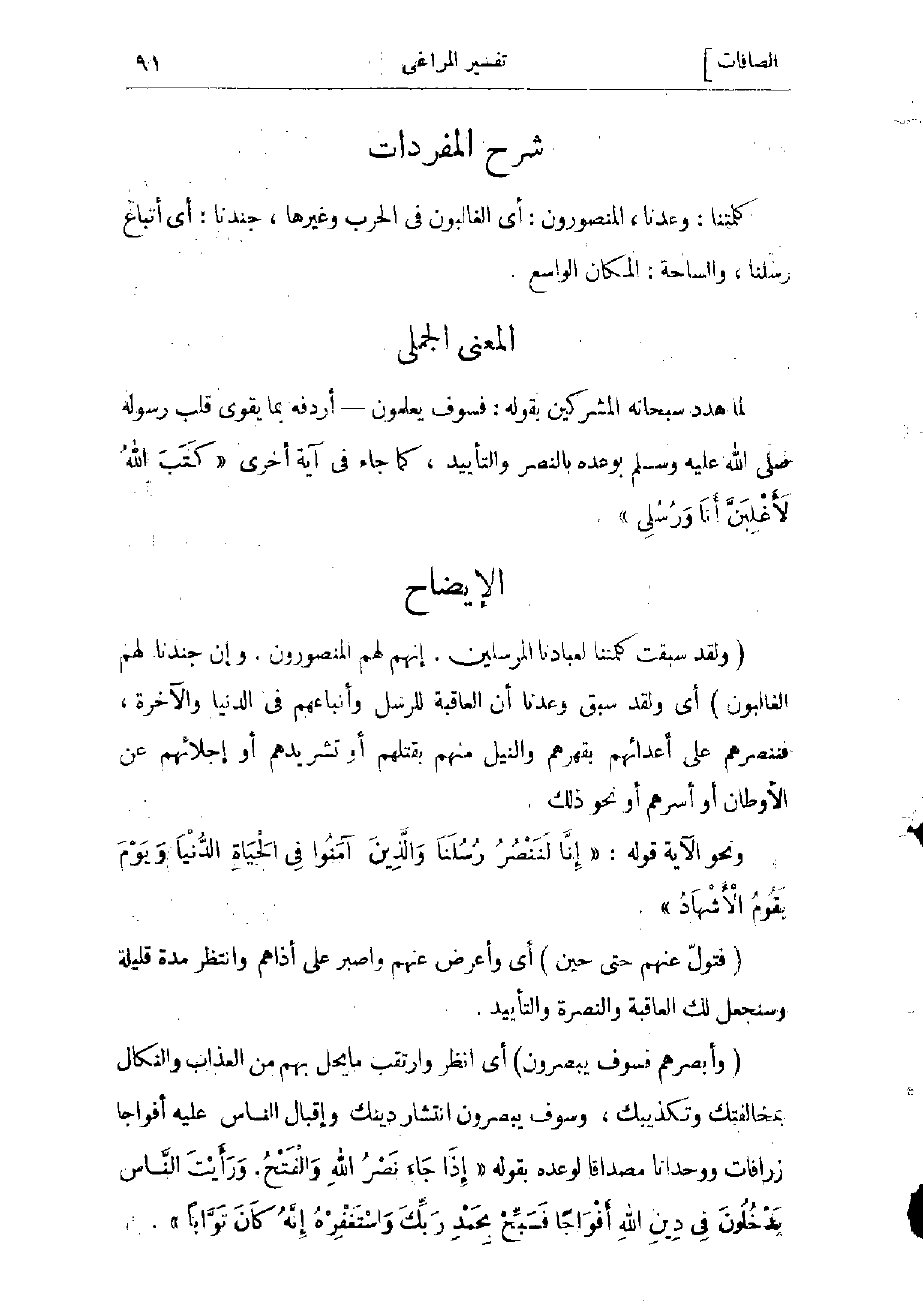 الصافات ] تفسير المراغى ٩١
شرح المفردات
كلمتنا : وعدنا ، المنصورون : أى الغالبون فى الحرب وغيرها ، جندنا : أى أتباع
رسلنا ، والساحة : المكان الواسع .
المعنى الجملى
لما هدد سبحانه المشركين بقوله : فسوف يعلمون — أردفه بما يقوى قلب رسوله
صلى الله عليه وسلم بوعده بالنصر والتأييد ، كما جاء فى آية أخرى « كَتَبَ اللهُ
لَأَغْلِبَنَّ أَنَا وَرُسُلِى » .
الإيضاح
( ولقد سبقت كلمتنا لعبادنا المرسلين . إنهم لهم المنصورون . وإن جندنا لهم
الغالبون ) أى ولقد سبق وعدنا أن العاقبة للرسل وأتباعهم فى الدنيا والآخرة ،
فننصرهم على أعدائهم بقهرهم والنيل منهم بقتلهم أو تشريدهم أو إجلائهم عن
الأوطان أو أسرهم أو نحو ذلك .
ونحو الآية قوله : « إِنَّا لَنَنْصُرُ رُسُلَنَا وَالَّذِينَ آمَنُوا فِى الْحَيَاةِ الدُّنْيَا وَيَوْمَ
يَقُومُ الْأَشْهَادُ » .
( فتولّ عنهم حتى حين ) أى وأعرض عنهم واصبر على أذاهم وانتظر مدة قليلة
وسنجعل لك العاقبة والنصرة والتأييد .
( وأبصرهم فسوف يبصرون) أى انظر وارتقب مايحل بهم من العذاب والنكال
بمخالفتك وتكذيبك ، وسوف يبصرون انتشار دينك وإقبال الناس عليه أفواجا
زرافات ووحدانا مصداقا لوعده بقوله « إِذَا جَاءَ نَصْرُ اللهِ وَالْفَتْحُ. وَرَأَيْتَ النَّاسَ
يَدْخُلُونَ فِى دِينِ اللهِ أَفْوَاجًا فَسَبِّحْ بِحَمْدِ رَبِّكَ وَاسْتَغْفِرْهُ إِنَّهُ كَانَ تَوَّاباً » .